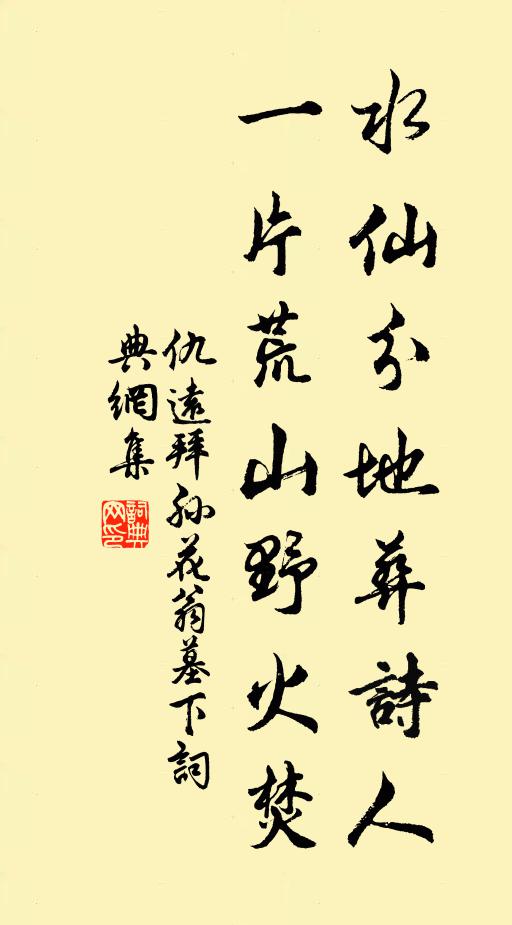 水仙分地葬詩人
一片荒山野火焚
仇遠拜孙花翁墓下詞
典網集
詞典网印